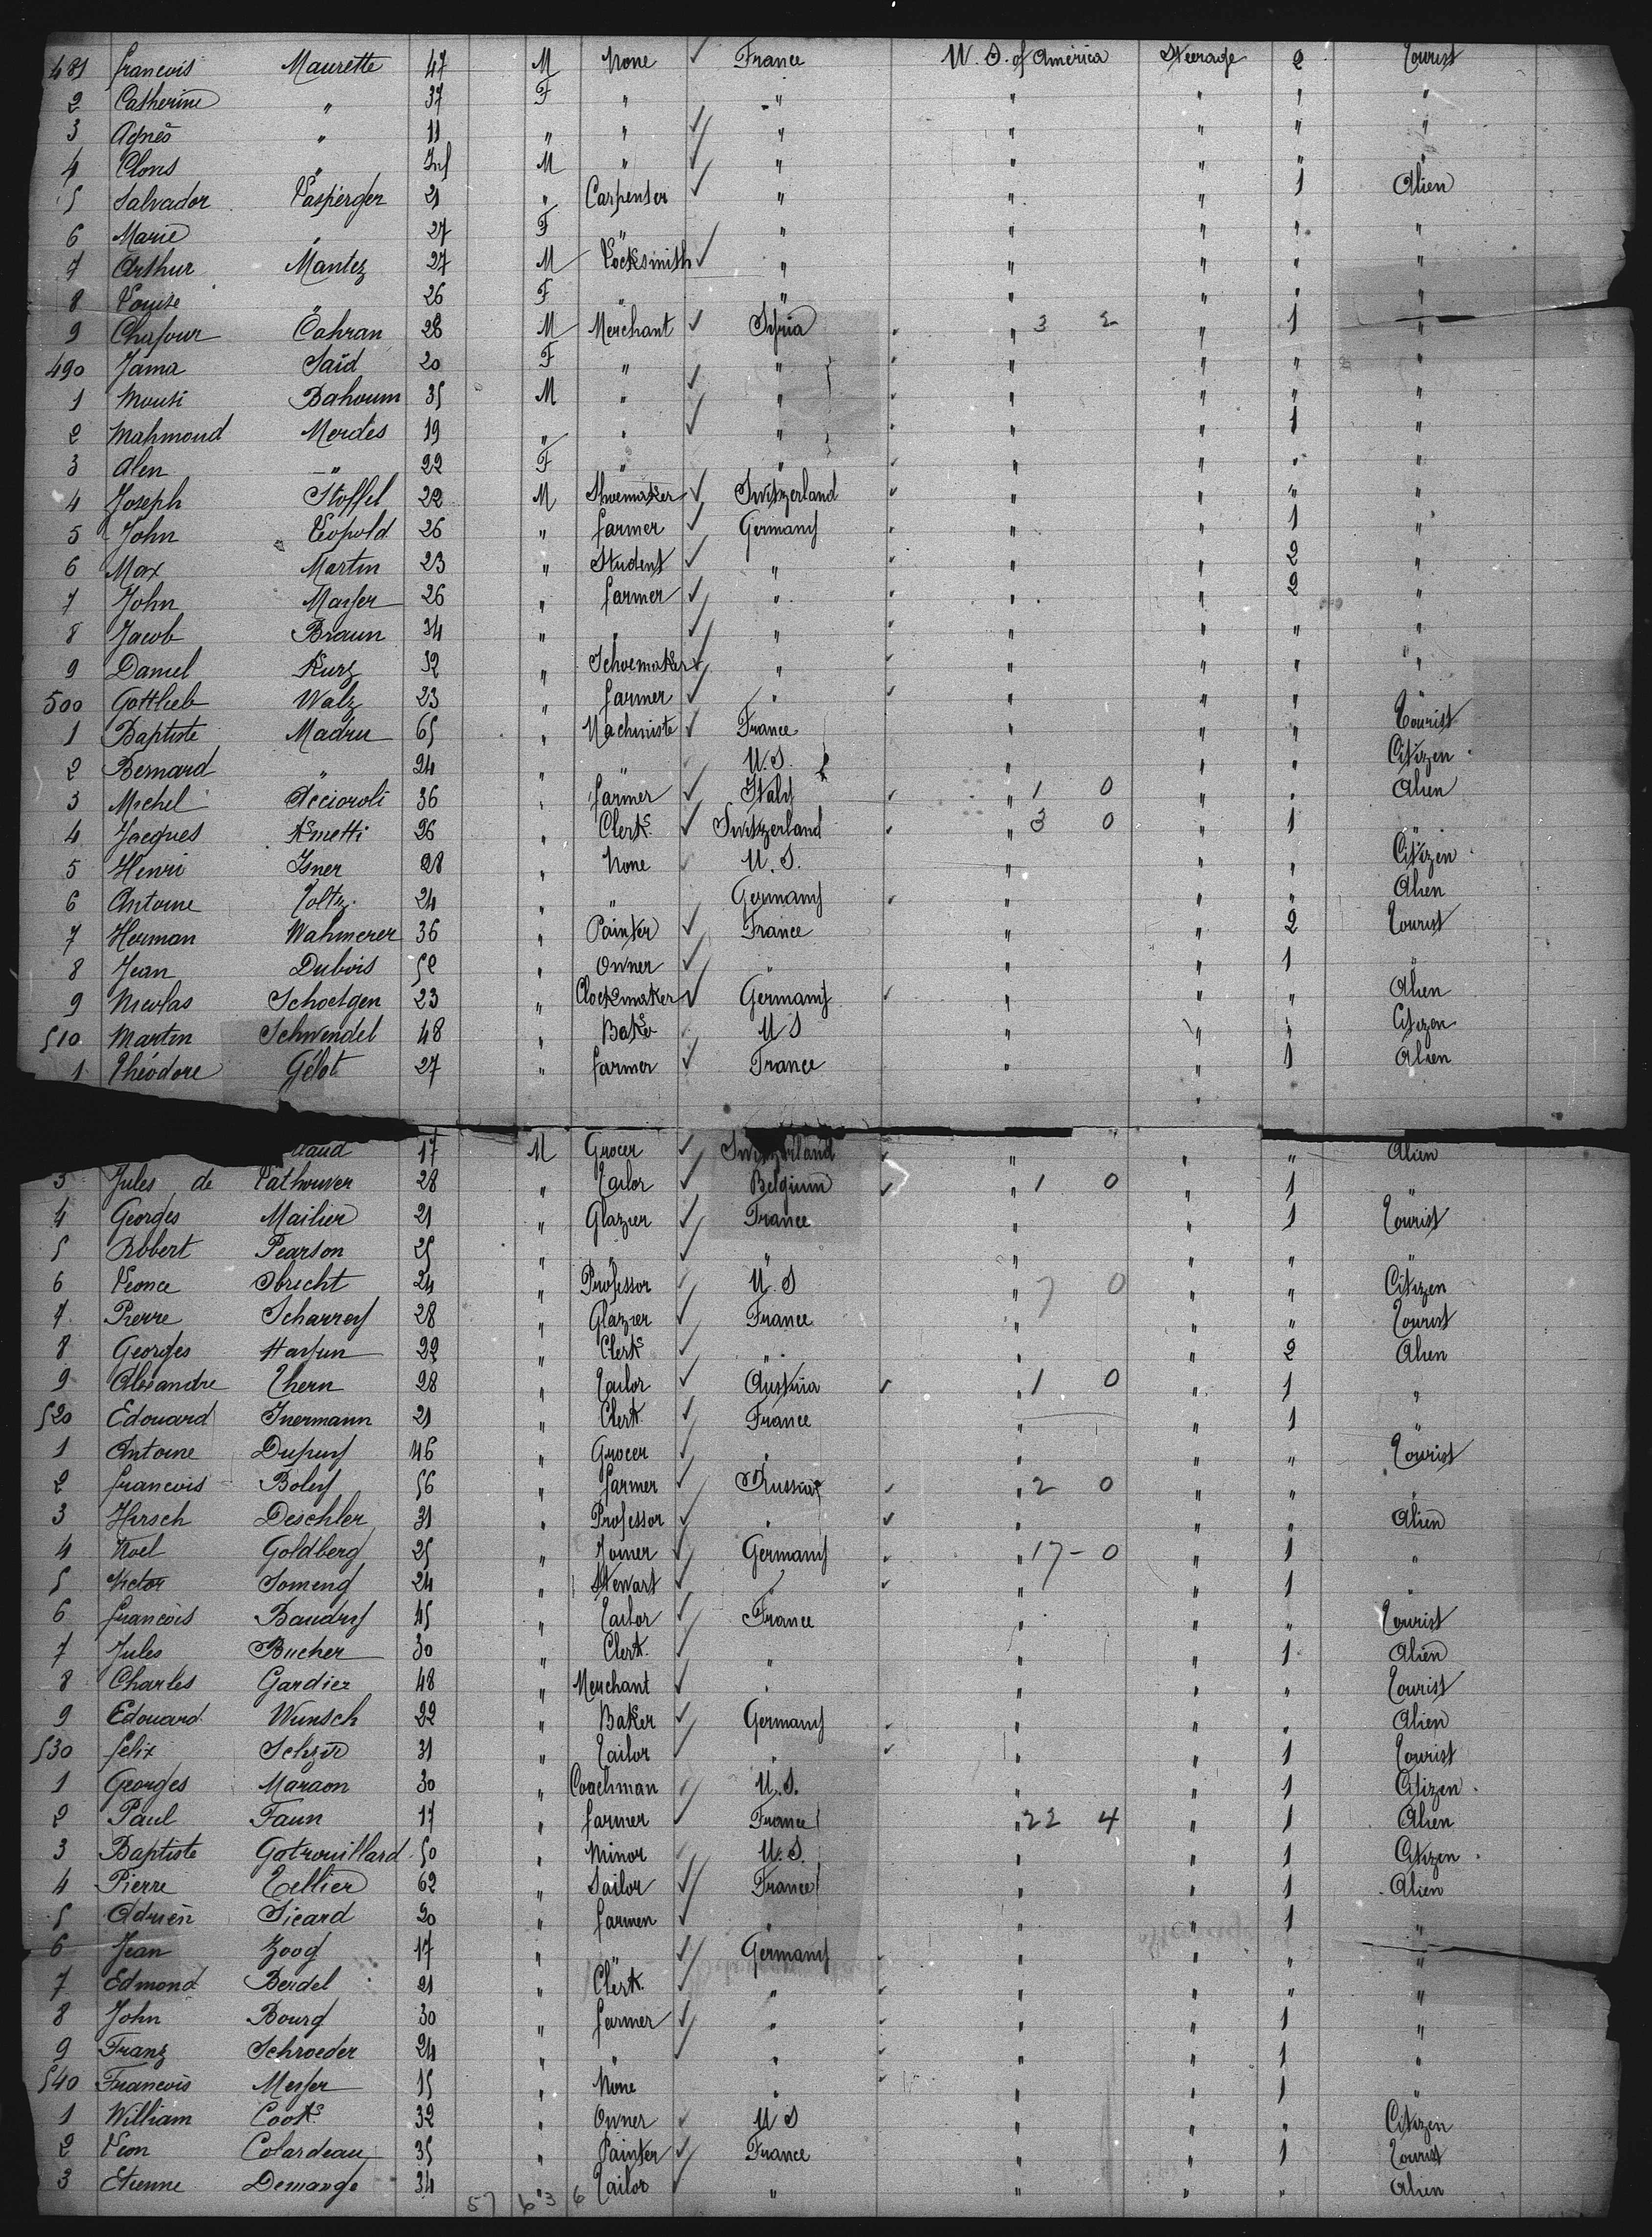 481 francois Maurette 47 M None ✓ France U. S. of América Steerage 2 Tourist
2 Catherine " 37 F " " " " " "
3 Agnès " 11 " " ✓ " " " " "
4 Clovis " Inf M " ✓ " " " " "
5 Salvador Lasperger 21 " Carpenter ✓ " " " 1 Alien
6 Marie " 27 F " " " " " "
7 Arthur Mantez 27 M Locksmith ✓ " " " " "
8 Louise " 26 F " " " " " "
9 Chafour Cahran 28 M Merchant ✓ Syria " 3 2 " 1 "
490 Jama Said 20 F " " " " " "
1 Mousi Bahoum 35 M " ✓ " " " " "
2 Mahmoud Merdes 19 " " ✓ " " " 1 "
3 Alen " 22 F " " " " " "
4 Joseph Stoffel 22 M Shoemaker ✓ Switzerland " " " "
5 John Leopold 26 " farmer ✓ Germany " " 1 "
6 Max Martin 23 " Student ✓ " " " 2 "
7 John Mayer 26 " farmer ✓ " " " 2 "
8 Jacob Braun 34 " " ✓ " " " " "
9 Daniel Kurz 32 " Schoemaker ✓ " " " " "
500 Gottlieb Walz 23 " farmer ✓ " " " " "
1 Baptiste Madru 65 " Machiniste ✓ France " " " Tourist
2 Bernard " 24 " " U.S. " " " Citizen
3 Michel Accioroli 36 " farmer ✓ Italy " 1 0 " " Alien
4 Jacques Ametti 26 " Clerk ✓ Switzerland " 3 0 " 1 "
5 Henri Isner 28 " None U.S. " " " Citizen
6 Antoine Voltz 24 " " Germany " " " Alien
7 Herman Wahmerer 36 " Painter ✓ France " " 2 Tourist
8 Jean Dubois 52 " Owner ✓ " " " 1 "
9 Nicolas Schoetgen 23 " Clockmaker ✓ Germany " " " Alien
510 Martin Schwendel 48 " Baker U S " " " Citizen
1 Théodore Gélot 27 " farmer ✓ France " " 1 Alien
17 M Grocer ✓ Switzerland " " " Alien
3 Jules de Lathouver 28 " Tailor ✓ Belgium " 1 0 " 1 "
4 Georges Mailier 21 " Glazier ✓ France " " 1 Tourist
5 Robert Pearson 25 " " ✓ " " " " "
6 Leonce Obrecht 24 " Professor U. S " 7 0 " " Citizen
7 Pierre Scharroy 28 " Glazier ✓ France " " " Tourist
8 Georges Hayun 22 " Clerk ✓ " " " 2 Alien
9 Alexandre Thern 28 " Tailor ✓ Austria " 1 0 " 1 "
520 Edouard Inermann 21 " Clerk ✓ France " " 1 "
1 Antoine Dupuy 46 " Grocer ✓ " " " " Tourist
2 francois Boley 56 " farmer ✓ Russia " 2 0 " " "
3 Hirsch Deschler 31 " Professor ✓ " " " " Alien
4 Noel Goldberg 25 " Joiner ✓ Germany " 17 - 0 " 1 "
5 Victor Someng 24 " Stewart ✓ " " " 1 "
6 francois Baudry 45 " Tailor ✓ France " " " Tourist
7 Jules Bucher 30 " Clerk ✓ " " " 1 Alien
8 Charles Gardier 48 " Merchant ✓ " " " " Tourist
9 Edouard Wunsch 22 " Baker ✓ Germany " " " Alien
530 felix 31 " Tailor ✓ " " " 1 Tourist
1 Georges Maraon 30 " Coachman ✓ U.S. " " 1 Citizen
2 Paul Faun 17 " farmer ✓ France " 22 4 " 1 Alien
3 Baptiste Gatrouillard 50 " Minor U.S. " " 1 Citizen
4 Pierre Tellier 62 " Sailor ✓ France " " 1 Alien
5 Adrien Sicard 20 " farmer ✓ " " " 1 "
6 Jean Zoog 17 " " ✓ Germany " " " "
7 Edmond Beidel 21 " Clerk ✓ " " " " "
8 John Bourg 30 " farmer ✓ " " " 1 "
9 Franz Schroeder 24 " " ✓ " " " 1 "
540 Francois Meyer 15 " None " " " 1 "
1 William Cook 32 " Owner ✓ U S " " " Citizen
2 Leon Colardeau 35 " Painter ✓ France " " 1 Tourist
3 Etienne Demange 34 " Tailor ✓ " " " " Alien
57 6 3 6